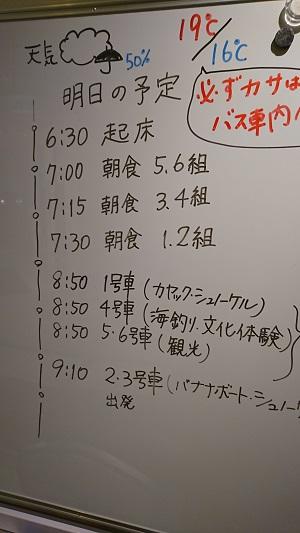 天気 50% 19℃/16℃
必ずカサは
バス車内
明日の予定
6:30 起床
7:00 朝食 5.6組
7:15 朝食 3.4組
7:30 朝食 1.2組
8:50 1号車(カヤック・シュノーケル)
8:50 4号車(海釣り.文化体験)
8:50 5・6号車(観光)
9:10 2・3号車(バナナボート・シュノー
出発